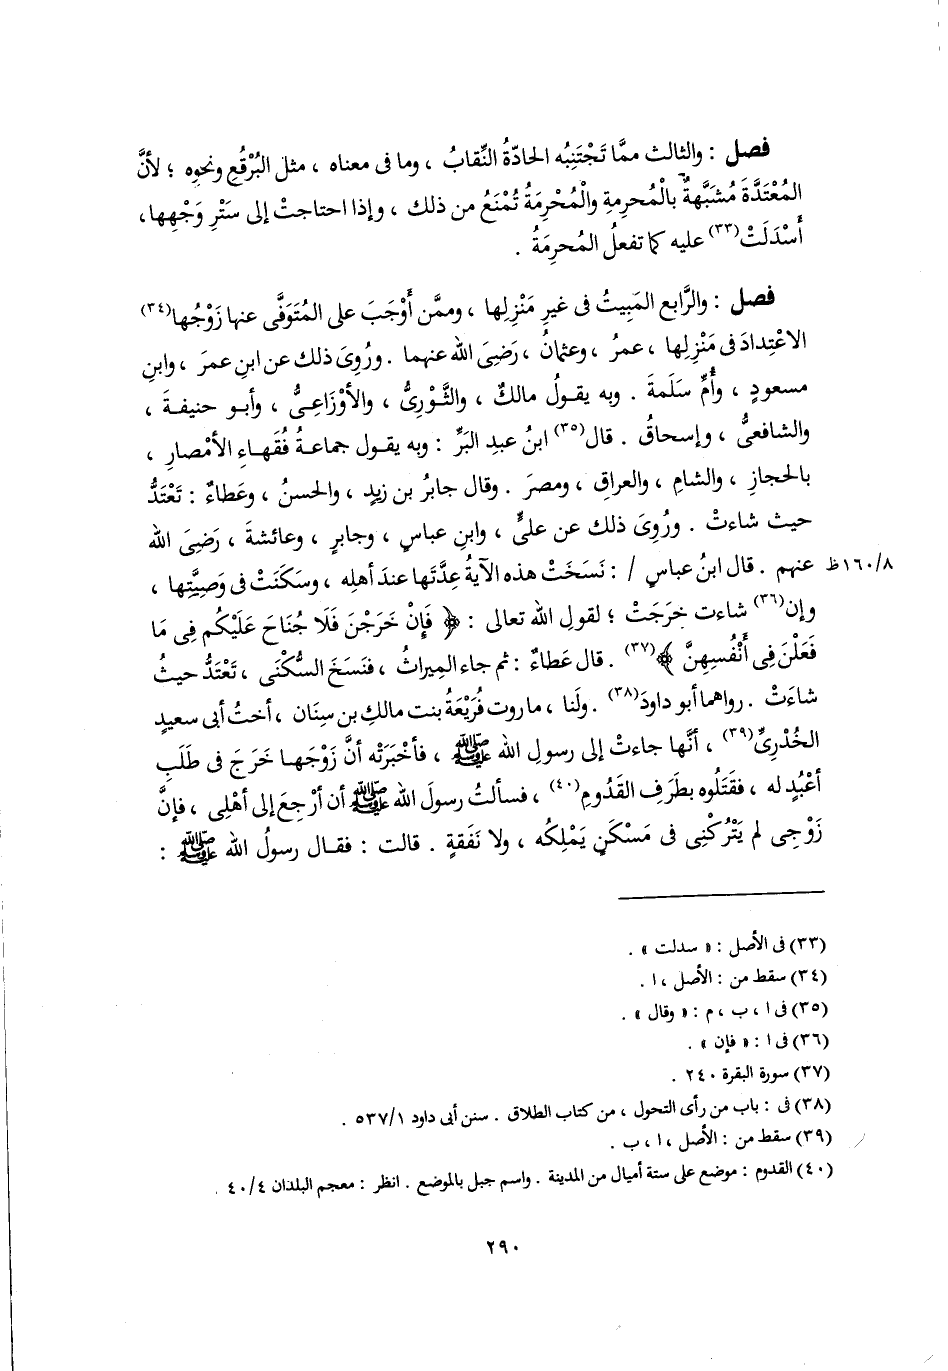 فصل : والثالث ممَّا تَجْتَنِبُه الحادّةُ النِّقابُ ، وما فى معناه ، مثل البُرْقُعِ ونحوِه ؛ لأنَّ
المُعْتَدَّةَ مُشَبَّهةٌ بالْمُحرِمةِ والْمُحْرِمَةُ تُمْنَعُ من ذلك ، وإذا احتاجتْ إلى سَتْرِ وَجْهِها ،
أَسْدَلَتْ(٣٣) عليه كما تفعلُ المُحرِمَةُ .
فصل : والرَّابع المَبِيتُ فى غيرِ مَنْزِلِها ، وممَّن أَوْجَبَ على المُتَوَفَّى عنها زَوْجُها(٣٤)
الاعْتِدادَ فى مَنْزِلِها ، عمرُ ، وعثمانُ ، رَضِىَ الله عنهما . ورُوِىَ ذلك عن ابنِ عمرَ ، وابنِ
مسعودٍ ، وأُمِّ سَلَمةَ . وبه يقولُ مالكٌ ، والثَّوْرِىُّ ، والأوْزَاعِىُّ ، وأبو حنيفةَ ،
والشافعىُّ ، وإسحاقُ . قال(٣٥) ابنُ عبدِ البَرِّ : وبه يقول جماعةُ فُقَهاءِ الأمْصارِ ،
بالحجازِ ، والشامِ ، والعراقِ ، ومصرَ . وقال جابرُ بن زيدٍ ، والحسنُ ، وعَطاءٌ : تَعْتَدُّ
حيث شاءتْ . ورُوِىَ ذلك عن علىٍّ ، وابنِ عباسٍ ، وجابرٍ ، وعائشةَ ، رَضِىَ الله
٨/١٦٠ظ عنهم . قال ابنُ عباسٍ / : نَسَخَتْ هذه الآيةُ عِدَّتَها عندَ أهلِه ، وسَكَنَتْ فى وَصِيَّتِها ،
وإن(٣٦) شاءت خرَجَتْ ؛ لقولِ الله تعالى : ﴿ فَإِنْ خَرَجْنَ فَلَا جُنَاحَ عَلَيْكُم فِى مَا
فَعَلْنَ فِى أَنْفُسِهِنَّ ﴾(٣٧) . قال عَطاءٌ : ثم جاء المِيراثُ ، فنَسَخَ السُّكْنَى ، تَعْتَدُّ حيثُ
شاءَتْ . رواهما أبو داودَ(٣٨) . ولَنا ، ما روت فُرَيْعَةُ بنت مالكِ بن سِنَان ، أختُ أبى سعيدٍ
الخُدْرِىِّ(٣٩) ، أنَّها جاءتْ إلى رسولِ الله ﷺ ، فأخْبَرَتْه أنَّ زَوْجَها خَرَجَ فى طَلَبِ
أعْبُدٍ له ، فقَتَلُوه بطَرَفِ القَدُومِ(٤٠) ، فسألتُ رسولَ الله ﷺ أن أرْجِعَ إلى أهْلِى ، فإنَّ
زَوْجِى لم يَتْرُكْنِى فى مَسْكَنٍ يَمْلِكُه ، ولا نَفَقةٍ . قالت : فقال رسولُ الله ﷺ :
(٣٣) فى الأصل : « سدلت » .
(٣٤) سقط من : الأصل ، ا .
(٣٥) فى ا ، ب ، م : « وقال » .
(٣٦) فى ا : « فإن » .
(٣٧) سورة البقرة ٢٤٠ .
(٣٨) فى : باب من رأى التحول ، من كتاب الطلاق . سنن أبى داود ١/٥٣٧ .
(٣٩) سقط من : الأصل ، ا ، ب .
(٤٠) القدوم : موضع على ستة أميال من المدينة . واسم جبل بالموضع . انظر : معجم البلدان ٤/٤٠ .
٢٩٠